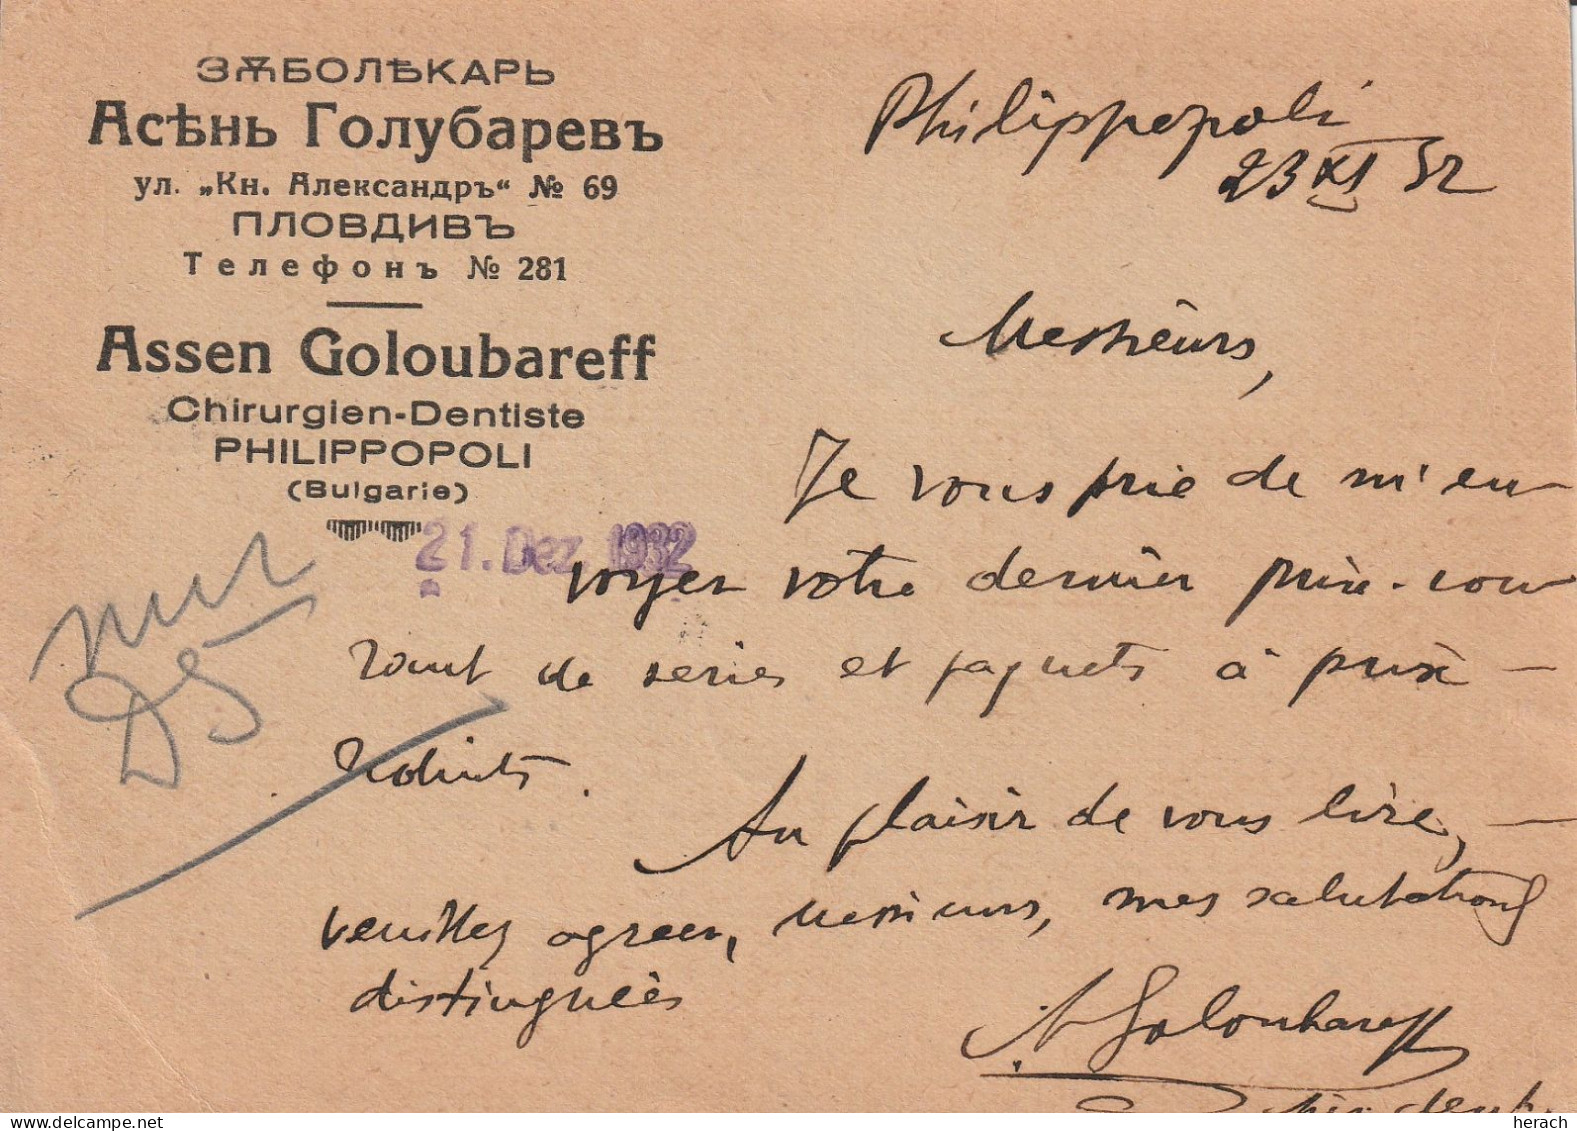 ЗѪБОЛѢКАРЬ
Асѣнь Голубаревъ
ул. „Кн. Александръ“ № 69
ПЛОВДИВЪ
Телефонъ № 281
Assen Goloubareff
Chirurgien-Dentiste
PHILIPPOPOLI
(Bulgarie)
21. Dez. 1932
Philippopoli
23 XI 32
Messieurs,
Je vous prie de m'en-
voyer votre dernier prix-cou-
rant de series et paquets à prix
réduits.
Au plaisir de vous lire,
veuillez agreer, Messieurs, mes salutations
distinguées
A Goloubareff
delcampe.net
herach